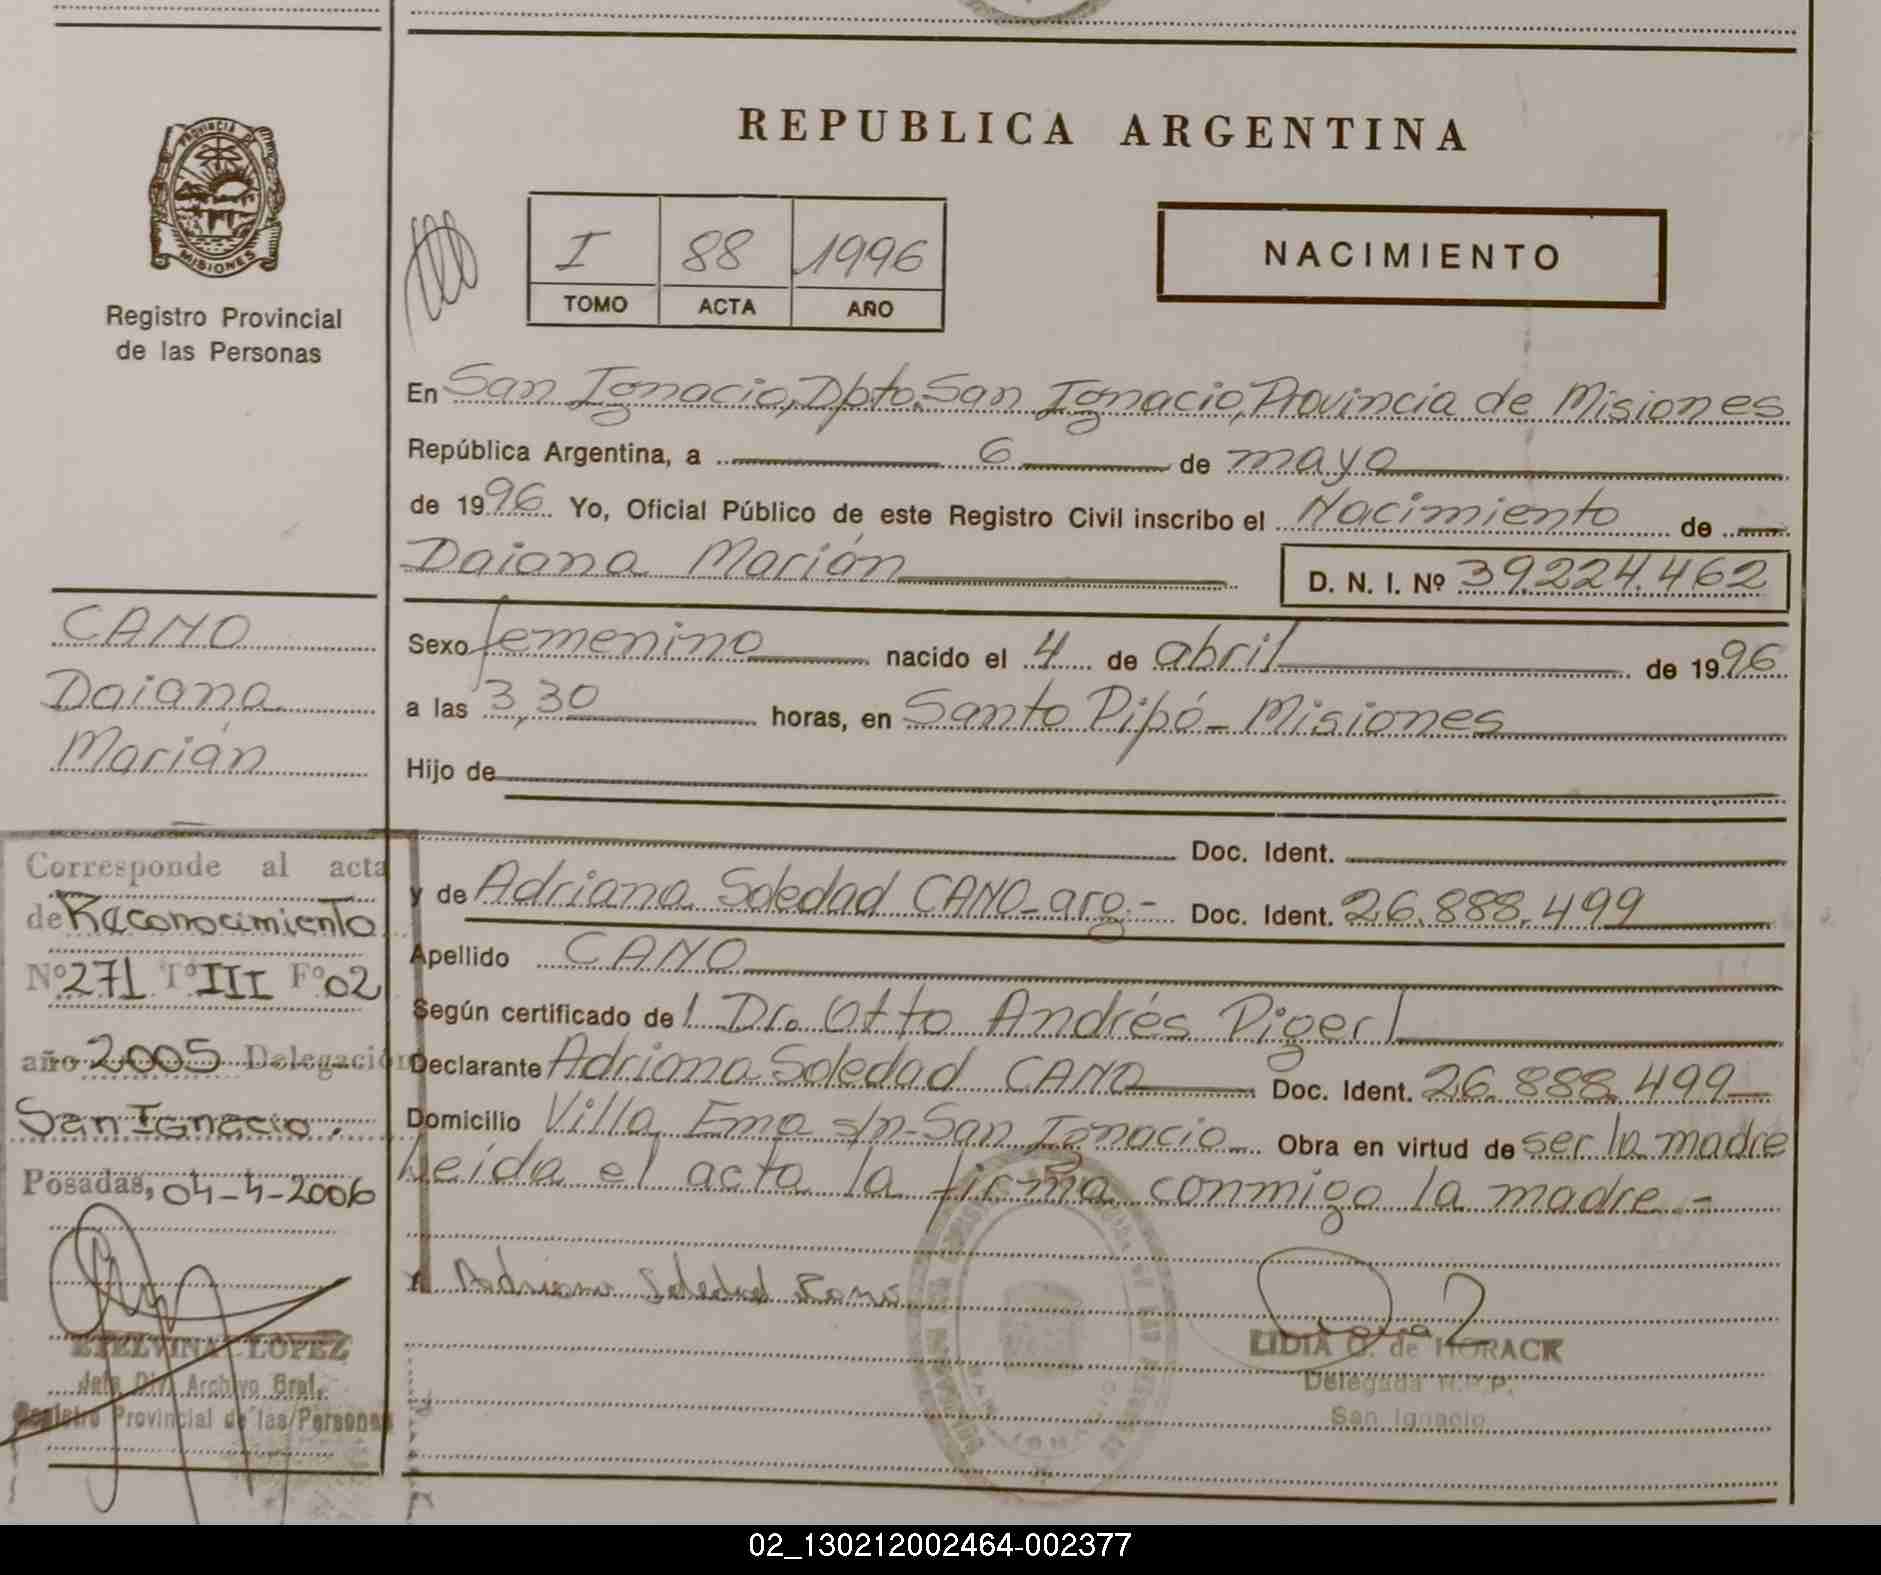 REPUBLICA ARGENTINA
PROVINCIA DE
MISIONES
Registro Provincial
de las Personas
I 88 1996
TOMO ACTA AÑO
NACIMIENTO
En San Ignacio, Dpto. San Ignacio, Provincia de Misiones
República Argentina, a 6 de mayo
de 1996 Yo, Oficial Público de este Registro Civil inscribo el Nacimiento de
Daiana Marián D. N. I. Nº 39.224.462
Sexo femenino nacido el 4 de abril de 1996
a las 3,30 horas, en Santo Pipó - Misiones
Hijo de
Doc. Ident.
y de Adriana Soledad CANO - arg.- Doc. Ident. 26.888.499
Apellido CANO
Según certificado del Dr. Otto Andrés Pigerl
Declarante Adriana Soledad CANO Doc. Ident. 26.888.499
Domicilio Villa Ema s/n - San Ignacio - Obra en virtud de ser la madre
Leída el acta la firma conmigo la madre.-
Adriana Soledad Cano
LIDIA O. de HORACK
Delegada R.P.P.
San Ignacio
CANO
Daiana
Marián
Corresponde al acta
de Reconocimiento
Nº 271 Tº III Fº 02
año 2005 Delegación
San Ignacio.
Posadas, 04-4-2006
ETELVINA LOPEZ
Jefa Div. Archivo Gral.
Registro Provincial de las Personas
02_130212002464-002377